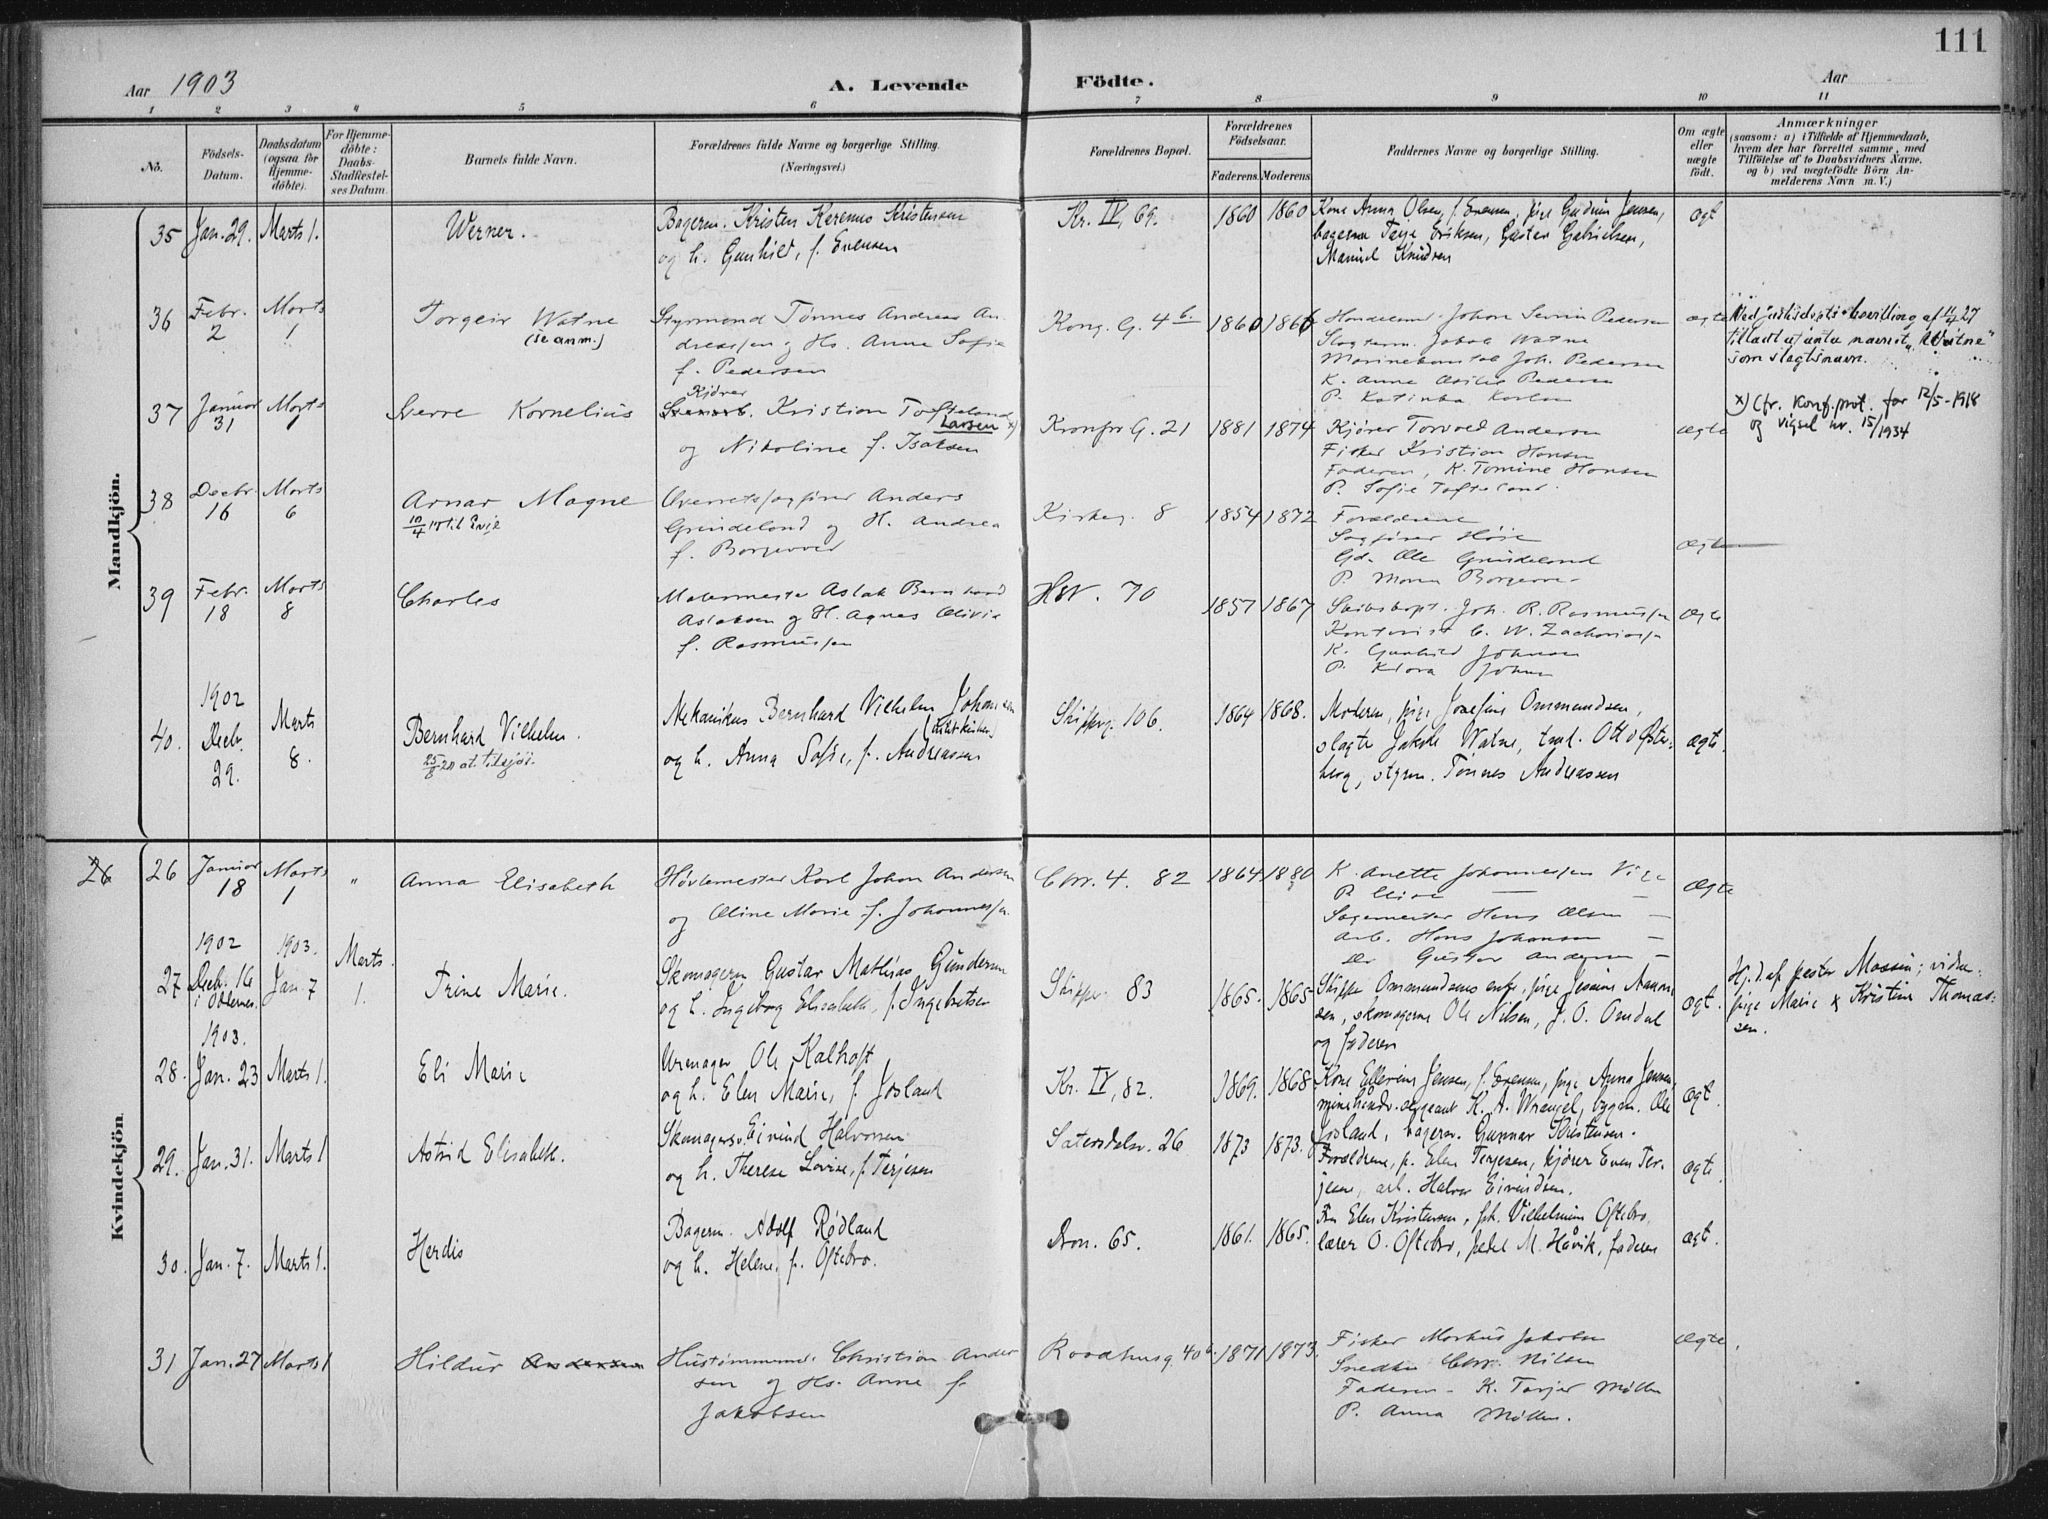 111
Aar 1903
A. Levende Födte.
Aar
1 2 3 4 5 6 7 8 9 10 11
No.
Födsels-Datum.
Daabsdatum (ogsaa för Hjemmedöbte).
For Hjemmedöbte: Daabs-Stadfæstelses Datum.
Barnets fulde Navn.
Forældrenes fulde Navne og borgerlige Stilling. (Næringsvei.)
Forældrenes Bopæl.
Forældrenes Födselsaar.
Faderens. Moderens.
Faddernes Navne og borgerlige Stilling.
Om ægte eller uægte födt.
Anmærkninger (saasom: a) i Tilfælde af Hjemmedaab, hvem der har forrettet samme, med Tilföielse af to Daabsvidners Navne. og b) ved uægtefödte Börn Anmelderens Navn m. V.)
Mandkjön.
35 Jan. 29. Marts 1. Werner.
Bagerm. Kristen Kerenus Kristensen
og h. Gunhild, f. Evensen
Kr. IV, 69. 1860 1860
Kone Anna Olsen, f. Evensen, pige Gudrun Jensen,
bagerm Terje Eriksen, Gustav Gabrielsen,
Manuel Knudsen
ægt
36 Febr. 2 Marts 1 Torgeir Watne
(se anm.)
Styrmand Tønnes Andreas An-
dreassen og Hs. Anna Sofie
f. Pedersen
Kong. G. 4 b. 1860 1866
Johan Severin Pedersen
Slagterm. Jakob Watne
Joh. Pedersen
K. Anna Pedersen
P. Katinka
ægte
Ved justisdepts bevilling af 11/4 27
tilladt at anta navnet "Watne"
som slagtsnavn.
37 Januar 31 Marts 1 Sverre Kornelius
Kjører
Kristian Tofteland
Larsen x)
og Nikoline f. Isaksen
Kronpr G. 21 1881 1874
Kjører Torvald Andersen
Fisker Kristian Hansen
Faderen, K. Tomine Hansen
P. Sofie Tofteland.
ægte
x) Cfr. Konf.prot. for 12/5-1918
og vigsel nr. 15/1934
38 Decbr. 16 Marts 6 Arnar Magne
10/4 17 til Evje
Overretssagfører Anders
Grundeland og H. Andrea
f. Borgevad
Kirkeg. 8 1854 1872
Forældrene
Sagfører Høie
Gd. Ole Grundeland
P. Borgevad
ægte
39 Febr. 18 Marts 8 Charles
Malermester Aslak Bernhard
Aslaksen og H. Agnes Olivia
f. Rasmussen
HSV. 70 1857 1867
Skibskapt. Joh. R. Rasmussen
Kontorist C. W. Zachariass
K. Gunhild Johnsen
P. Klara Johnsen
ægte
40. 1902 Decb. 29. Marts 8. Bernhard Vilhelm.
25/8 20 at. til sjøs.
Mekanikus Bernhard Vilhelm Johansen
og h. Anna Sofie, f. Andreassen
Skipperg. 106. 1864 1868.
Moderen, pige Josefine Ommundsen,
slagter Jakob Watne, tml. Otto Øster-
berg, styrm. Tønnes Andreassen
ægte.
Kvindekjön
26
26 Januar 18 Marts 1 " Anna Elisabeth
Høvlemester Karl Johan Andersen
og Oline Marie f. Johannessen
Chr. 4. 82 1864 1880
K. Anette Johannessen Vige
P.
Sagmester Hans Olsen —
arb. Hans Johansen —
do Gustav Andersen —
ægte
27 1902 Decb. 16 i Oddernes. 1903. Jan 7 Marts 1. Trine Marie.
Skomagerm Gustav Mathias Gundersen
og h. Ingeborg Elisabeth, f. Ingebretsen
Skipperg. 83 1865. 1865.
Skipper Ommundsens enke, pige Jensine Aanon-
sen, skomagerne Ole Nilsen, J. O. Omdal
og faderen
ægt.
Hj. d. af pastor Mossin; vidner
pige Marie & Kristine Thomas-
sen.
1903.
28. Jan. 23 Marts 1. Eli Marie
Urmager Ole Kalhoft
og h. Elen Marie, f. Jøsland
Kr. IV, 82. 1869. 1868
Kone Ellevine Jensen, f. Evensen, pige Anna Jensen,
K. A. Wrangel, bygm. Ole
Jøsland, bagersv. Gunnar Kristensen.
ægt.
29. Jan. 31. Marts 1 Astrid Elisabeth.
Skomagersv. Eivind Halvorsen
og h. Therese Lovise, f. Terjesen
Satersdalsv. 26 1873 1873.
Forældrene, p. Elen Terjesen, kjører Even Ter-
jesen, arb. Halvor Eivindsen.
ægte.
30. Jan. 7. Marts 1. Herdis
Bagerm. Adolf Rødland
og h. Helene, f. Oftebro.
Dron. 65. 1861. 1865.
Fru Elen Kristensen, frk. Vilhelmine Oftebro,
lærer O. Oftebro, pedel M. Håvik, faderen
ægt.
31 Jan. 27 Marts 1 Hildur Andersen
Hustømmerm. Christian Ander
sen og Hs. Anne f.
Jakobsen
Raadhusg. 40 b. 1871 1873.
Fisker Markus Jakobsen
Snedker Chr. Nilsen
Faderen - K. Tarjer Møller
P. Anna Møller.
ægte.